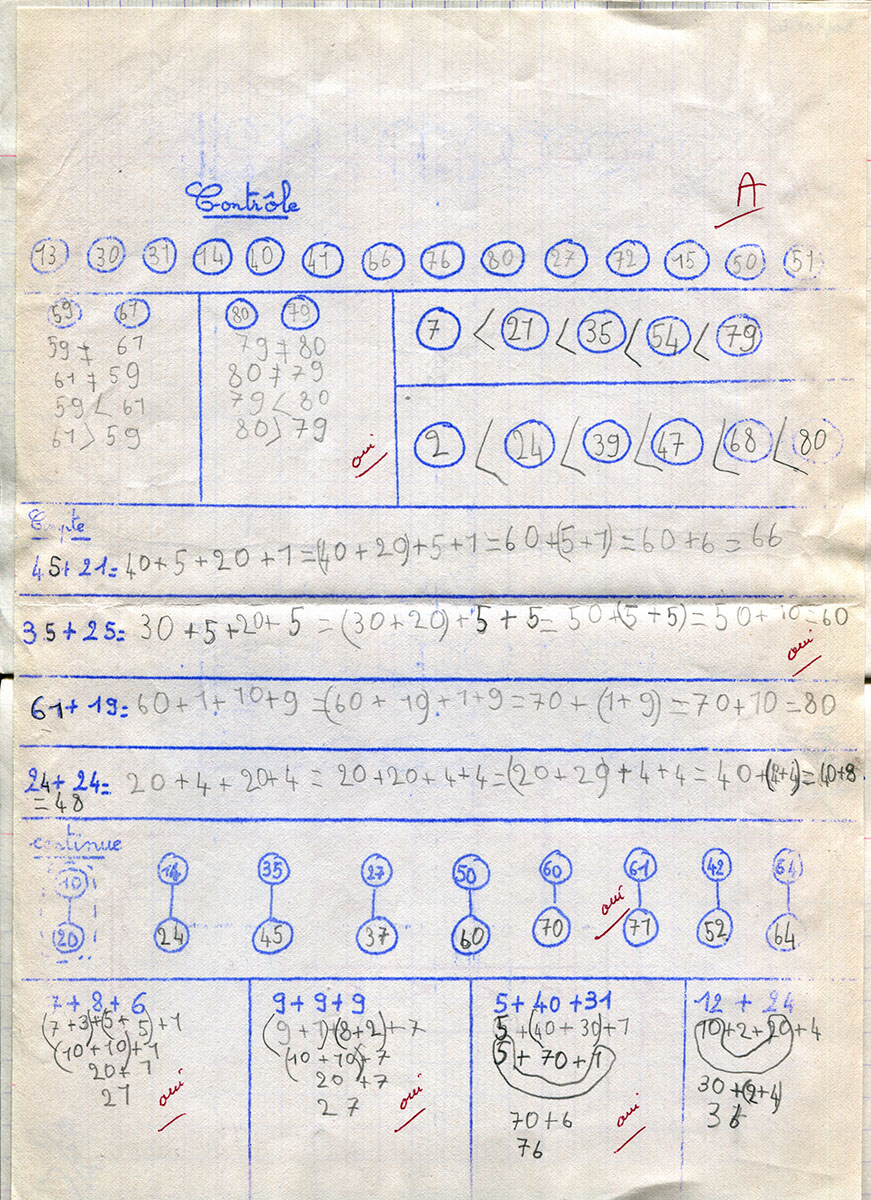 Contrôle
A
13 30 31 14 40 41 66 76 80 27 72 15 50 51
59 61
59 ≠ 61
61 ≠ 59
59 < 61
61 > 59
80 79
79 ≠ 80
80 ≠ 79
79 < 80
80 > 79
oui
7 < 21 < 35 < 54 < 79
2 < 24 < 39 < 47 < 68 < 80
Compte
45+21= 40+5+20+1=(40+20)+5+1=60+(5+1)=60+6=66
35+25= 30+5+20+5=(30+20)+5+5=50+(5+5)=50+10=60
oui
61+19= 60+1+10+9=(60+10)+1+9=70+(1+9)=70+10=80
24+24= 20+4+20+4=20+20+4+4=(20+20)+4+4=40+(4+4)=40+8
=48
continue
10 14 35 27 50 60 61 42 54
oui
20 24 45 37 60 70 71 52 64
7+8+6
(7+3)+(5+5)+1
(10+10)+1
20+1
21
oui
9+9+9
(9+1)+(8+2)+7
(10+10)+7
20+7
27
oui
5+40+31
5+(40+30)+1
5+70+1
70+6
76
oui
12+24
10+2+20+4
30+(2+4)
36